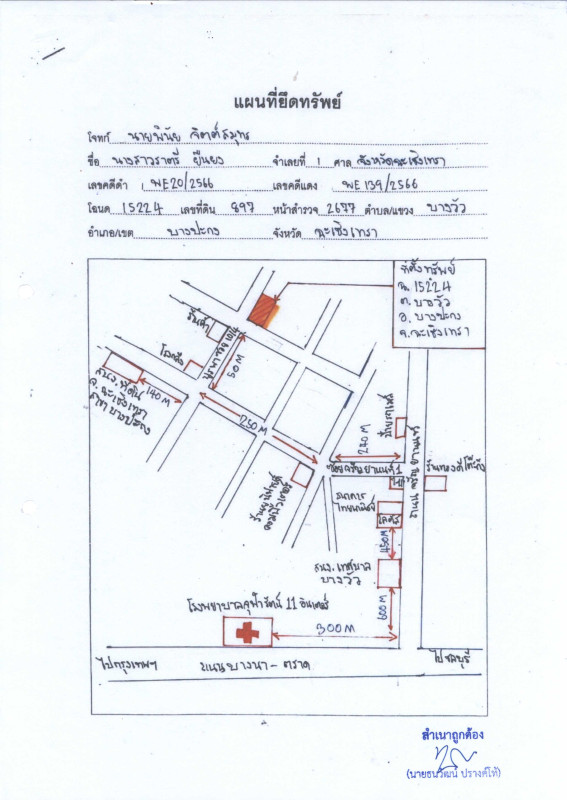 แผนที่ยึดทรัพย์
โจทก์ นายพินัย จิตต์สมุทร
ชื่อ นางสาวราตรี ยืนยง จำเลยที่ 1 ศาล จังหวัดฉะเชิงเทรา
เลขคดีดำ ผบE20/2566 เลขคดีแดง ผบE139/2566
โฉนด 15224 เลขที่ดิน 897 หน้าสำรวจ 2677 ตำบล/แขวง บางวัว
อำเภอ/เขต บางปะกง จังหวัด ฉะเชิงเทรา
ที่ตั้งทรัพย์
ฉ. 15224
ต. บางวัว
อ. บางปะกง
จ. ฉะเชิงเทรา
ร้านค้า
50 M
สนง. ที่ดิน
จ. ฉะเชิงเทรา
สาขา บางปะกง
140 M
250 M
240 M
ซอยจรัญยานนท์ 1
ถนน จรัญยานนท์
ธนาคาร
ไทยพาณิชย์
โลตัส
450M
สนง. เทศบาล
บางวัว
600M
โรงพยาบาลจุฬารัตน์ 11 อินเตอร์
300M
ไปกรุงเทพฯ ถนนบางนา - ตราด ไปชลบุรี
สำเนาถูกต้อง
(นายธนวัฒน์ ปรางค์โท้)